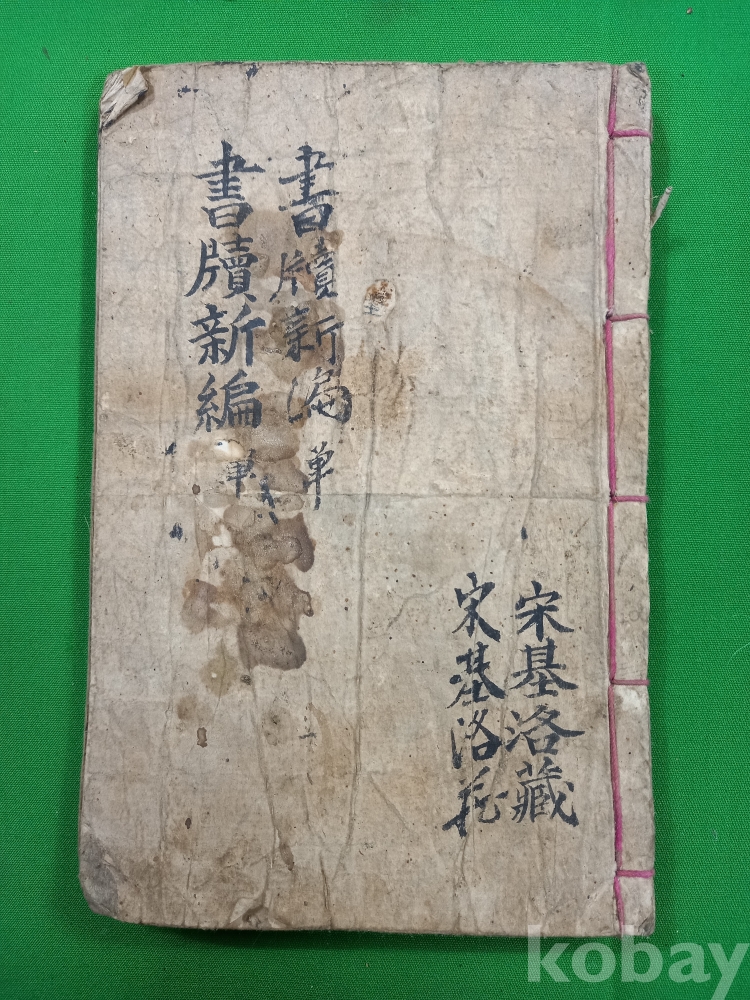 宋基洛藏
宋基洛藏
書牘新編 単
書牘新編 単
kobay